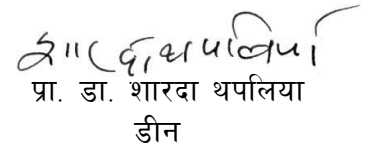 शारदा थपलिया
प्रा. डा. शारदा थपलिया
डीन